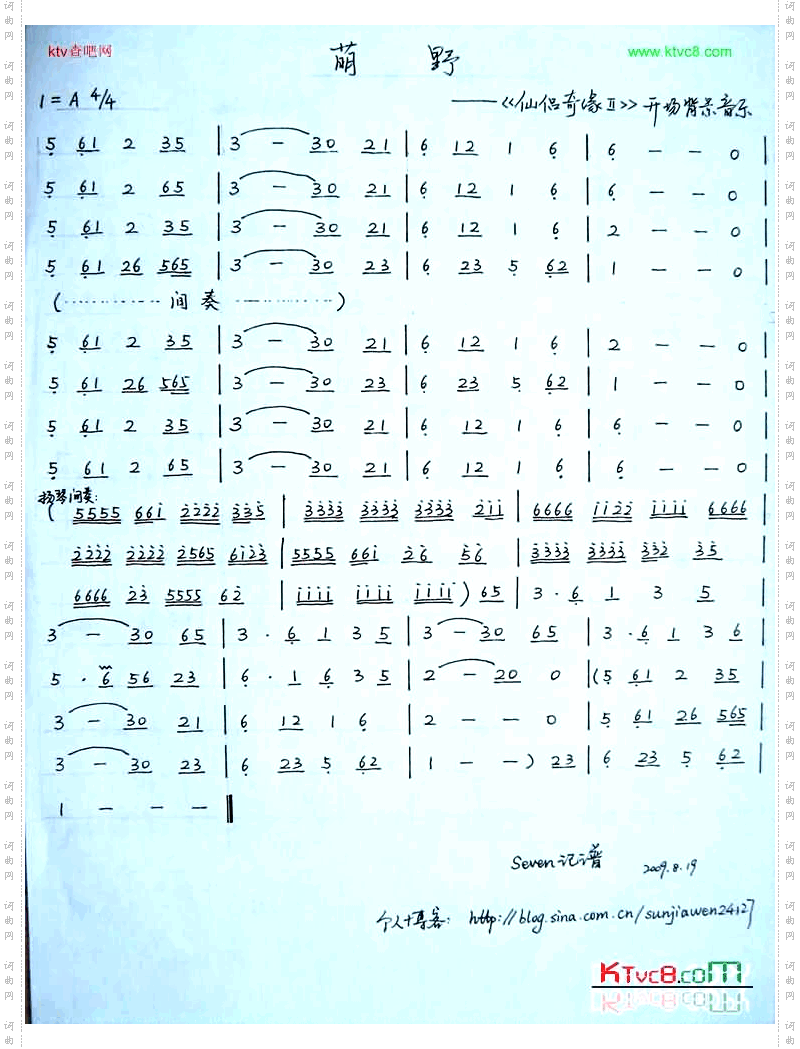 ktv查吧网
萌 野
www.ktvc8.com
1 = A 4/4
——《仙侣奇缘II》开场背景音乐
5 61 2 35 | 3 — 30 21 | 6 12 1 6 | 6 — — 0 |
5 61 2 65 | 3 — 30 21 | 6 12 1 6 | 6 — — 0 |
5 61 2 35 | 3 — 30 21 | 6 12 1 6 | 2 — — 0 |
5 61 26 565 | 3 — 30 23 | 6 23 5 62 | 1 — — 0 |
(············ 间奏 ············)
5 61 2 35 | 3 — 30 21 | 6 12 1 6 | 2 — — 0 |
5 61 26 565 | 3 — 30 23 | 6 23 5 62 | 1 — — 0 |
5 61 2 35 | 3 — 30 21 | 6 12 1 6 | 6 — — 0 |
5 61 2 65 | 3 — 30 21 | 6 12 1 6 | 6 — — 0 |
扬琴间奏:
( 5555 661 2222 335 | 3333 3333 3333 211 | 6666 1122 1111 6666
2222 2222 2565 6123 | 5555 661 26 56 | 3333 3333 332 35
6666 23 5555 62 | 1111 1111 1111 ) 65 | 3 · 6 1 3 5
3 — 30 65 | 3 · 6 1 3 5 | 3 — 30 65 | 3 · 6 1 3 6
5 · 6 56 23 | 6 · 1 6 3 5 | 2 — 20 0 | (5 61 2 35 |
3 — 30 21 | 6 12 1 6 | 2 — — 0 | 5 61 26 565 |
3 — 30 23 | 6 23 5 62 | 1 — — ) 23 | 6 23 5 62 |
1 — — —
Seven 记谱 2009.8.19
个人博客: http://blog.sina.com.cn/sunjiawen24127
KTvc8.com
词曲网